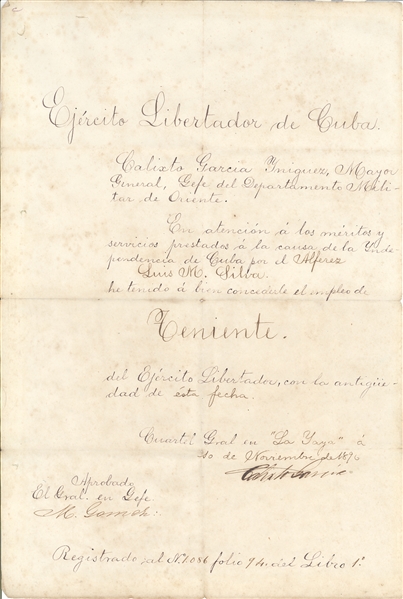 Ejército Libertador de Cuba.
Calixto García Yñiguez, Mayor
General, Gefe del Departamento Mili-
tar de Oriente.
En atención á los méritos y
servicios prestados á la causa de la Inde-
pendencia de Cuba por el Alferez
Luis M. Silva
he tenido á bien concederle el empleo de
Teniente.
del Ejército Libertador, con la antigüe-
dad de ésta fecha.
Cuartel Gral en "La Yaya" á
10 de Noviembre de 1896
Calixto García
Aprobado
El Gral. en Gefe
M. Gomez
Registrado al Nº 1.086 folio 94 del Libro 1º